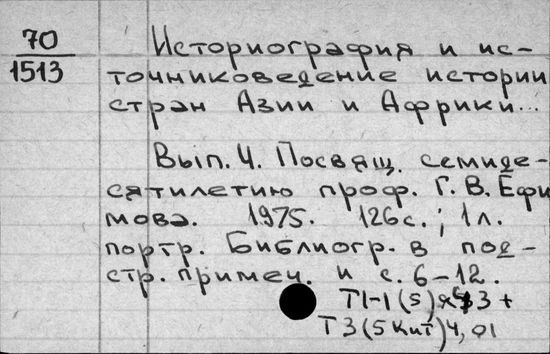 70
1513
Историография и ис-
точниковедение истории
стран Азии и Африки...
Вып. 4. Посвящ. семиде-
сятилетию проф. Г. В. Ефи
мова. 1975. 126с.; 1л.
портр. Библиогр. в под-
стр. примеч. и с. 6-12.
Т1-1(5)я 3 +
Т3(5Кит)4,01